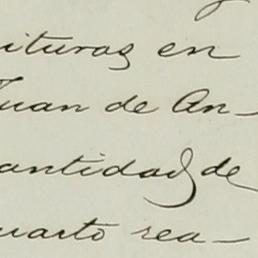 ituras en
Juan de An-
antidad de
uarto rea-